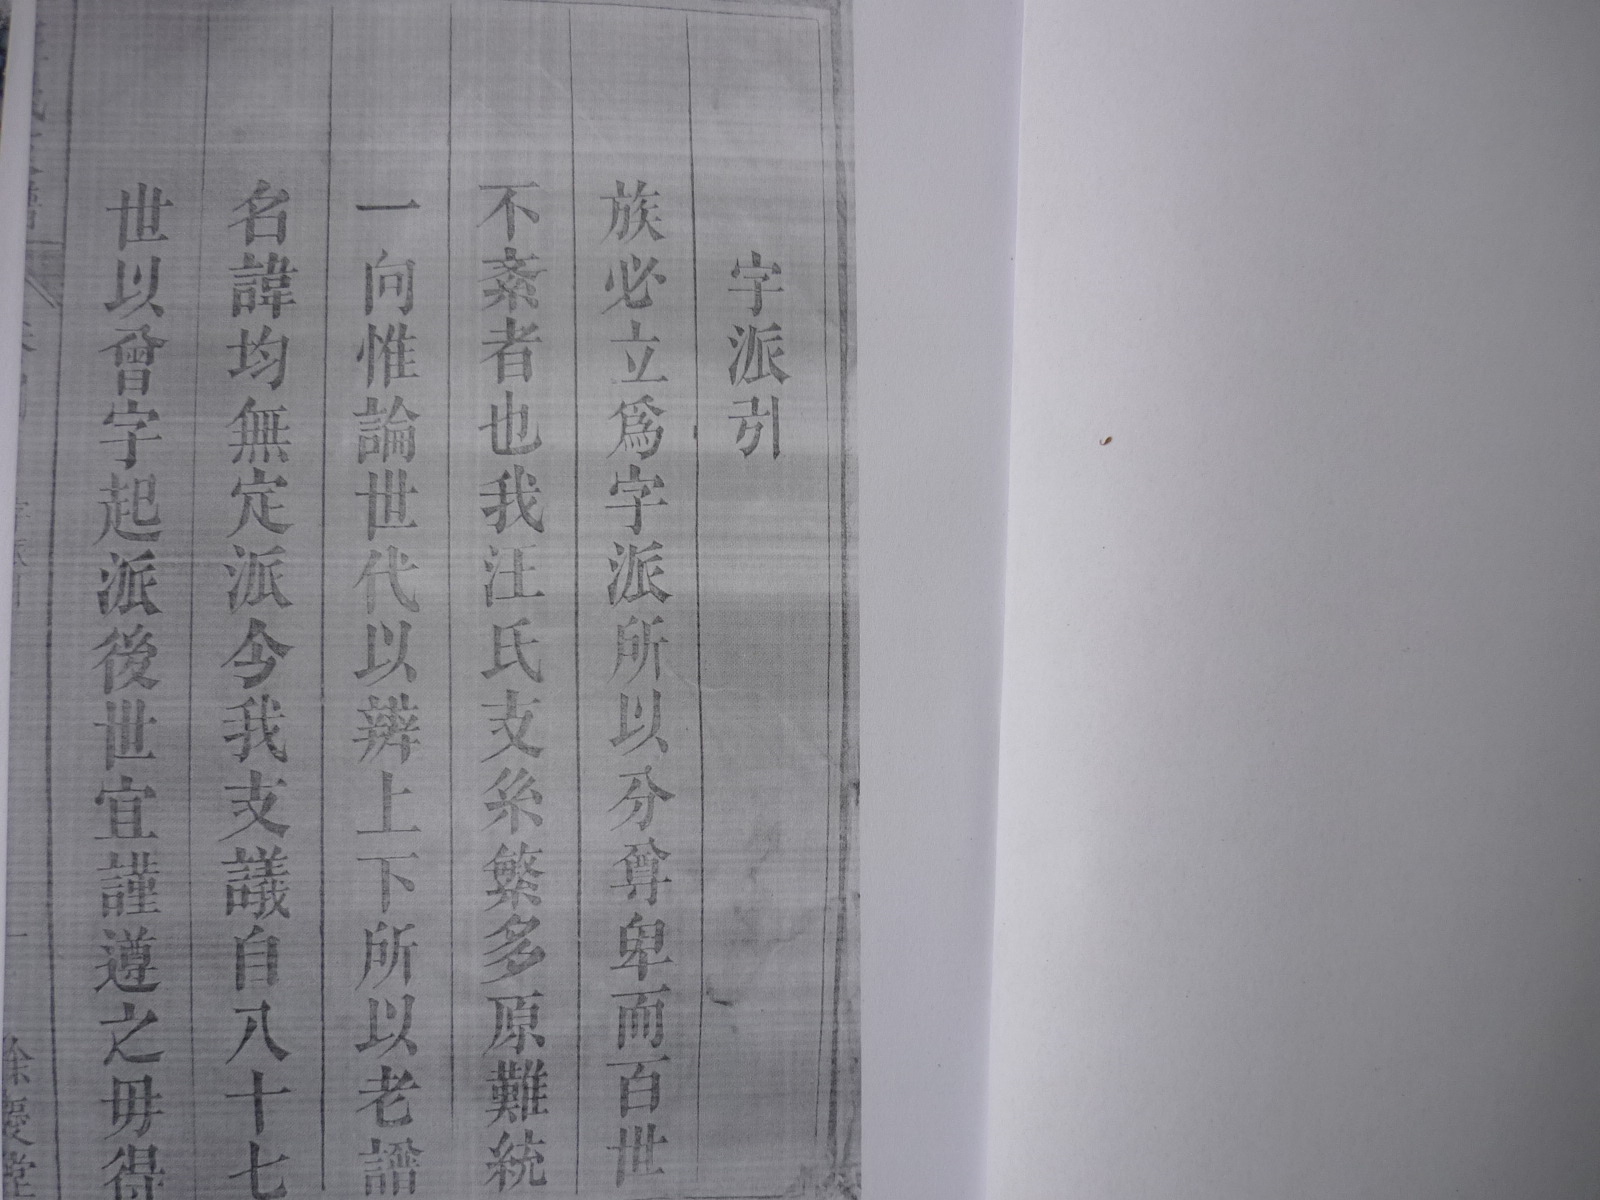 字派引
族必立爲字派所以分尊卑而百世
不紊者也我汪氏支糸繁多原難統
一向惟論世代以辨上下所以老譜
名諱均無定派今我支議自八十七
世以曾字起派後世宜謹遵之毋得
餘慶堂